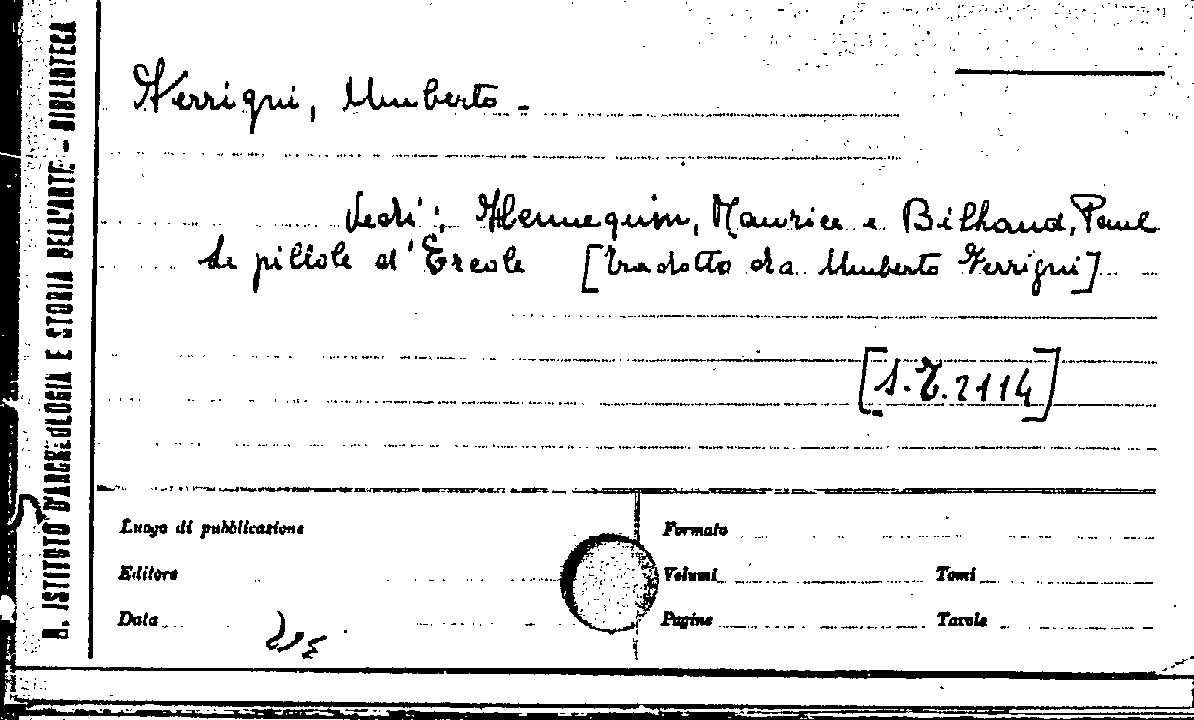 R. ISTITUTO D'ARCHEOLOGIA E STORIA DELL'ARTE - BIBLIOTECA
Ferrigni, Umberto -
Vedi: Hennequin, Maurice e Bilhaud, Paul
Le pillole d'Ercole [tradotto da Umberto Ferrigni]
[S.T. 2114]
Luogo di pubblicazione
Editore
Data
Formato
Volumi Tomi
Pagine Tavole